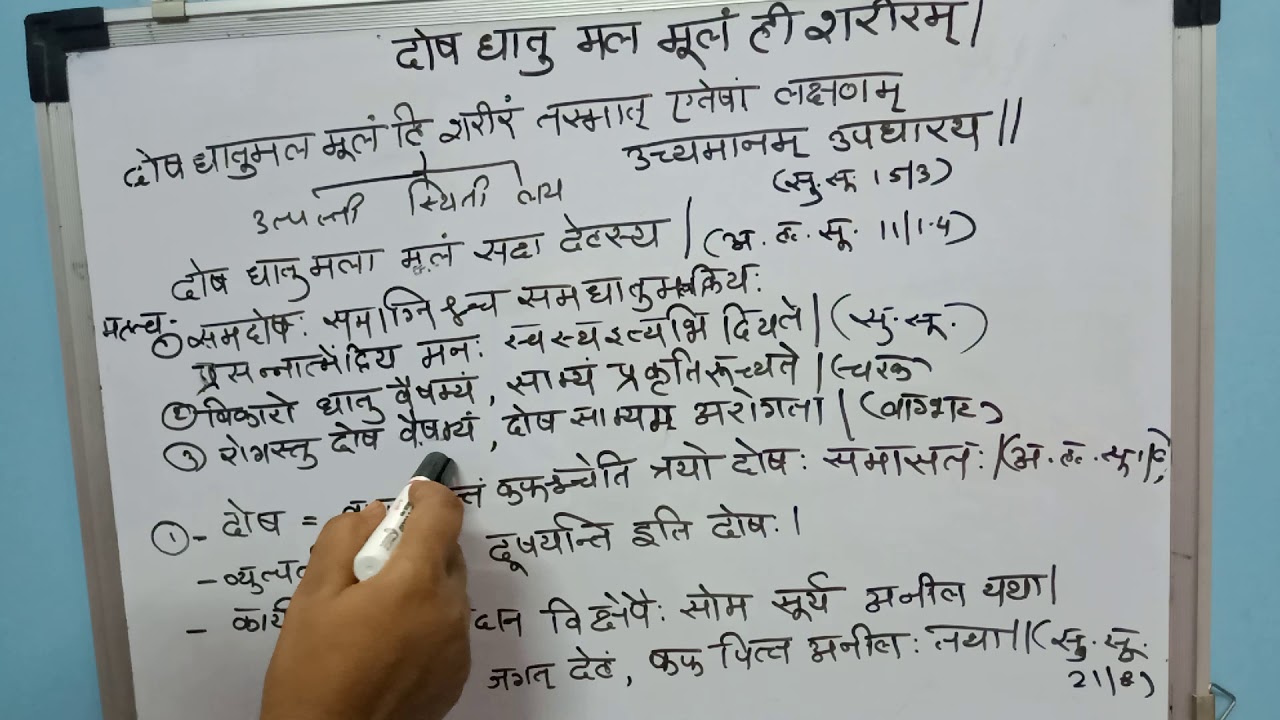 दोष धातु मल मूलं ही शरीरम्।
दोष धातुमल मूलं हि शरीरं तस्मात् एतेषां लक्षणम्
उच्यमानम् उपधारय॥
(सु.सू. 15/3)
उत्पत्नी स्थिती लय
दोष धातुमला मूलं सदा देहस्य | (अ. ह. सू. 11/1.4)
① समदोषः समाग्निश्च समधातुमलक्रियः
प्रसन्नात्मेंद्रिय मनः स्वस्थइत्यभिदियते | (सु.सू.)
② विकारो धातु वैषम्यं, साम्यं प्रकृतिरूच्यते | चरक
③ रोगस्तु दोष वैषम्यं, दोष साम्यम् अरोगता | (वाग्भट)
① - दोष = कफश्चेति त्रयो दोषः समासतः | (अ. ह. सू.
- दूषयन्ति इति दोषः।
- विक्षेपैः सोम सूर्य अनील यथा|
जगत् देहं, कफ पित्त अनीलः तथा॥ (सु. सू.
21/8)